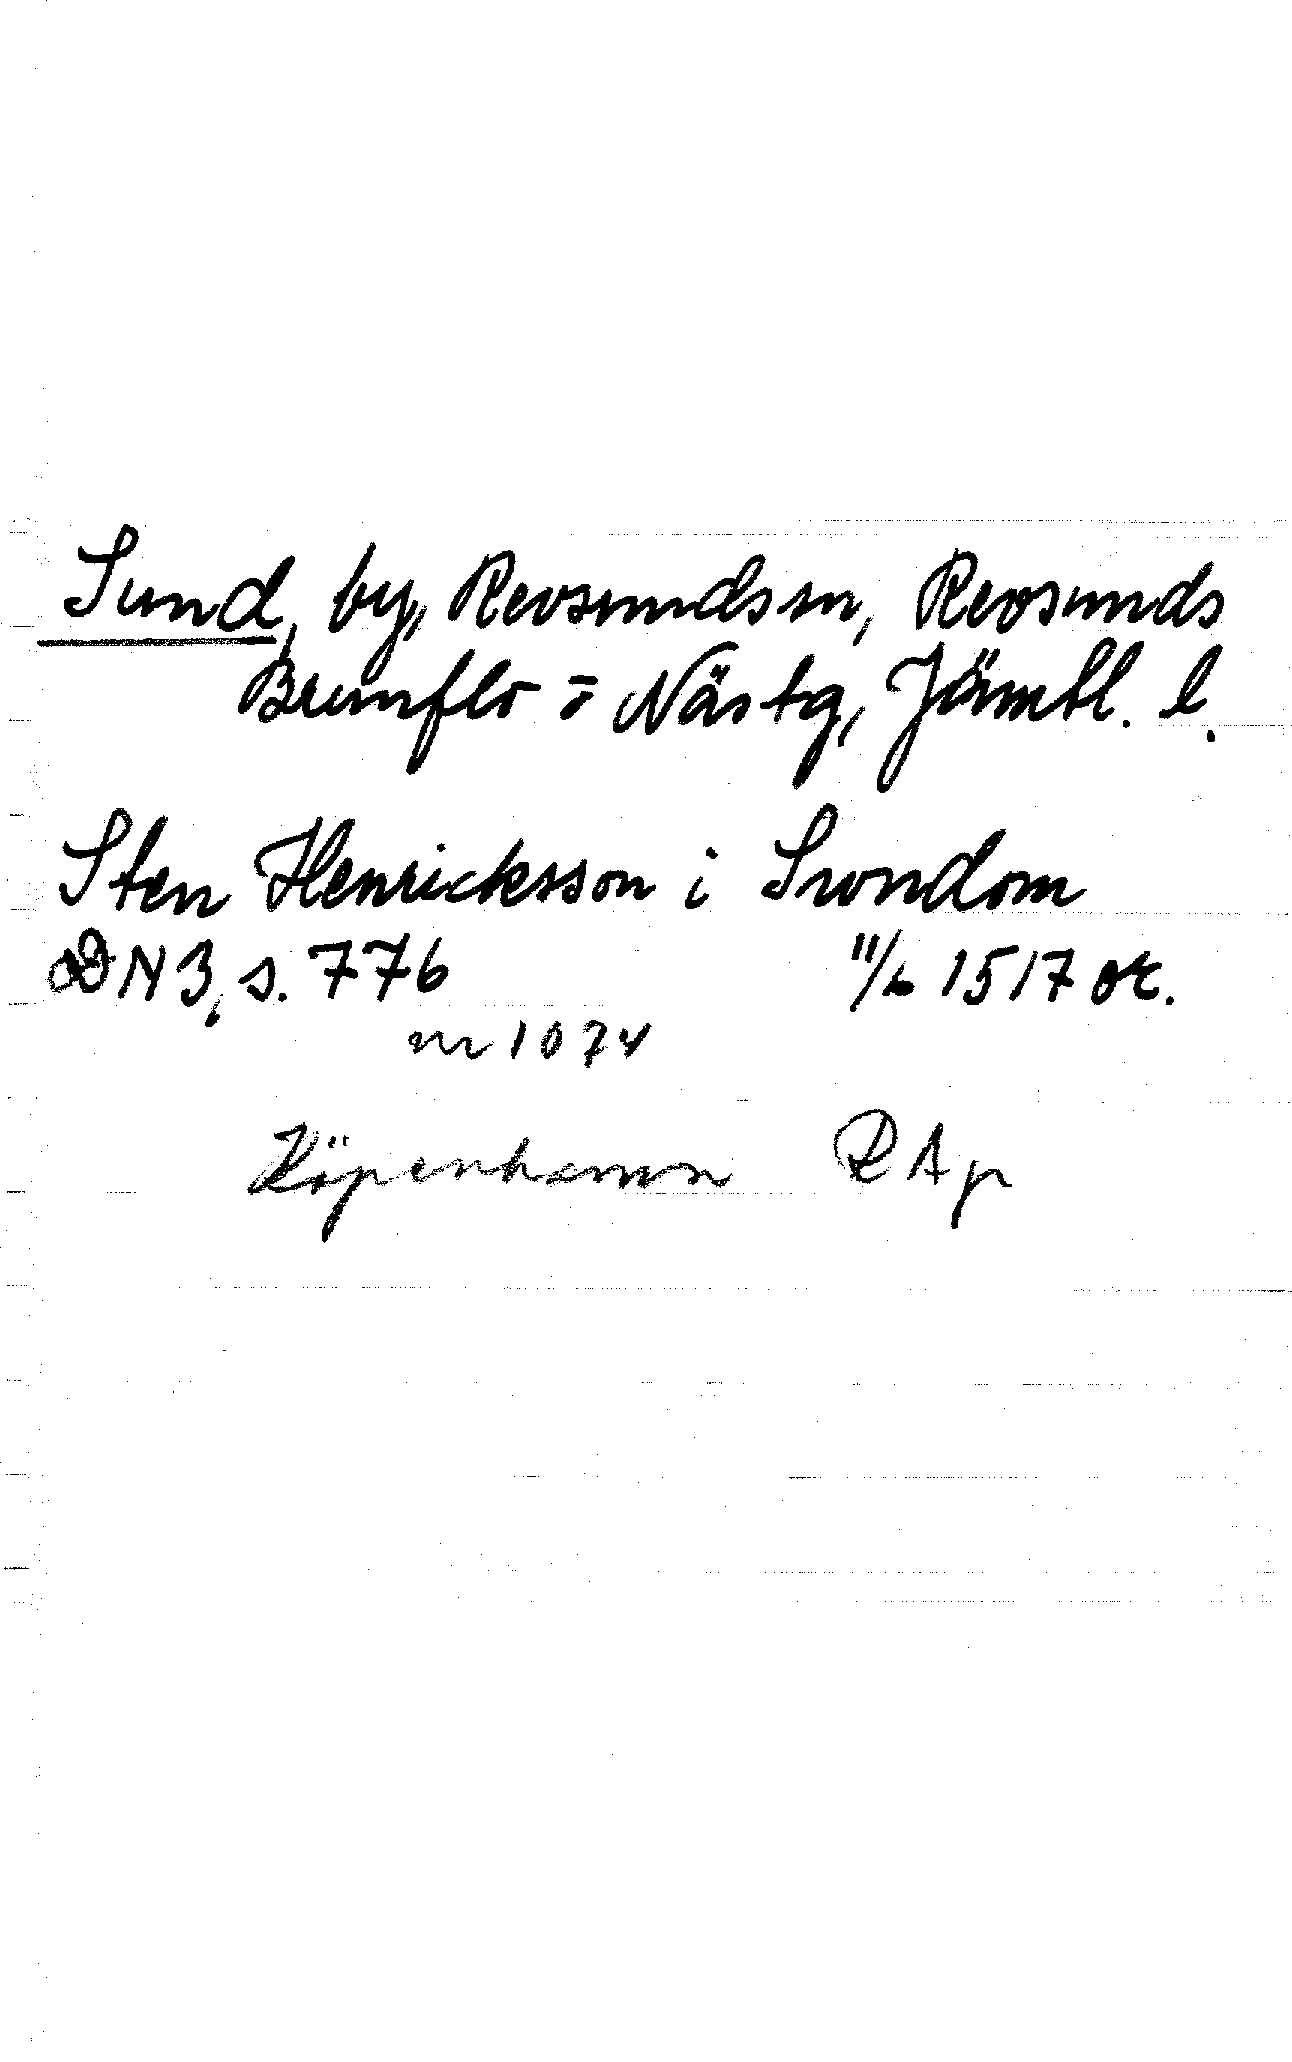 Sund, by, Revsunds sn, Revsunds
Brunflo = Näs tg, Jämtl. l.
Sten Henricksson i Swndom
DN 3, s. 776 11/6 1517 or.
nr 1074
Köpenhamn RA pr